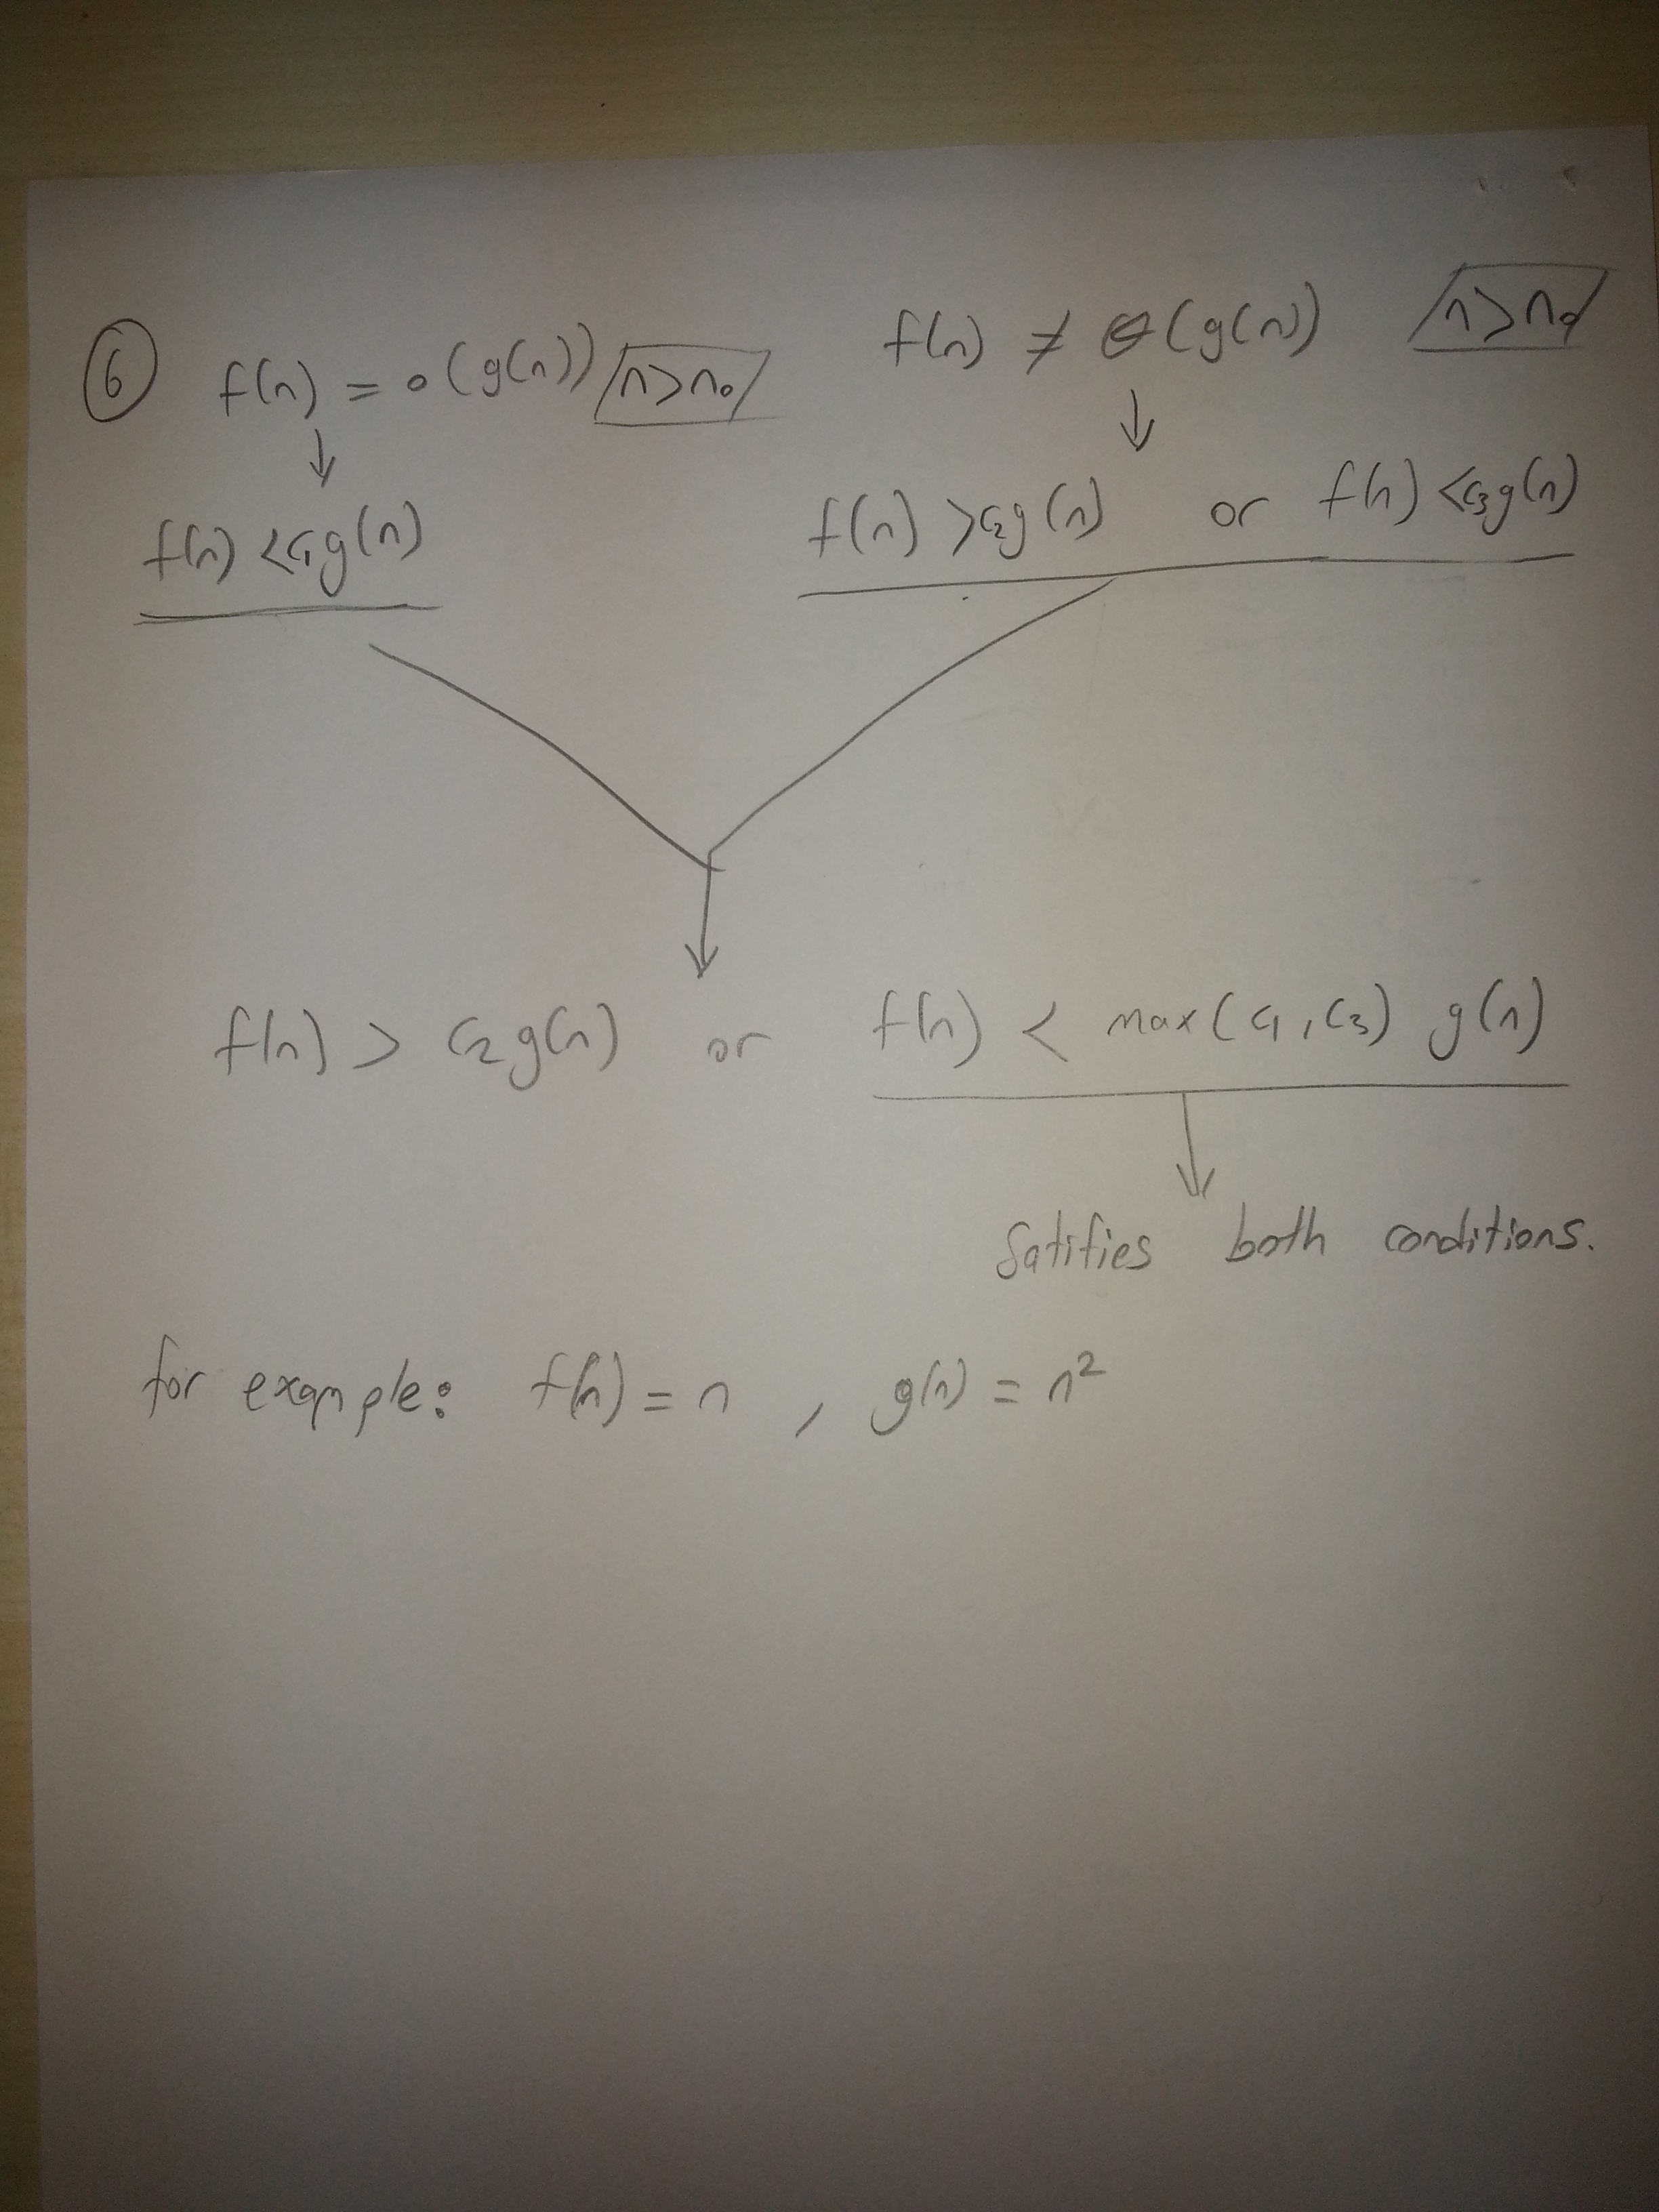 ⑥ f(n) = o(g(n)) n>n₀ f(n) ≠ Θ(g(n)) n>n₀
↓ ↓
f(n) <c₁g(n) f(n) >c₂g(n) or f(n) <c₃g(n)
f(n) > c₂g(n) or f(n) < max(c₁,c₃) g(n)
Satifies both conditions.
for example: f(n) = n , g(n) = n²